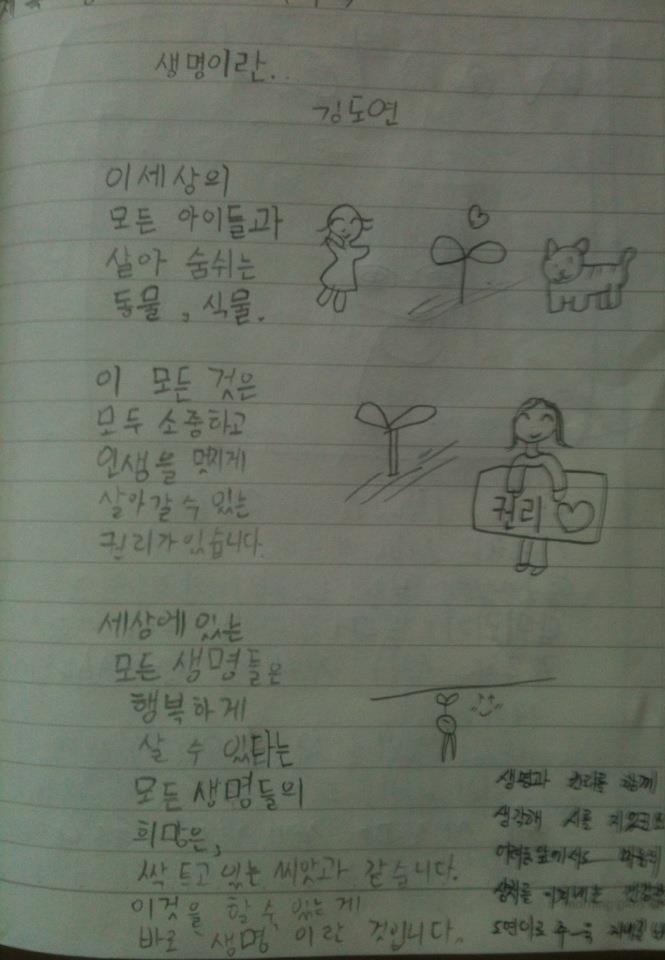 생명이란..
김도연
이세상의
모든 아이들과
살아 숨쉬는
동물, 식물.
이 모든 것은
모두 소중하고
인생을 멋지게
살아갈 수 있는
권리가 있습니다.
권리
세상에 있는
모든 생명들은
행복하게
살 수 있다는
모든 생명들의
희망은,
싹 트고 있는 씨앗과 같습니다.
이것을 할 수 있는게
바로 생명 이란 것입니다.
생명과 권리를 함께
생각해 시를